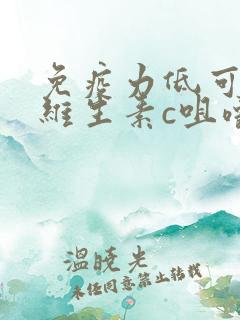 免疫力低可
维生素c咀嚼
温晓光
未经同意禁止转载